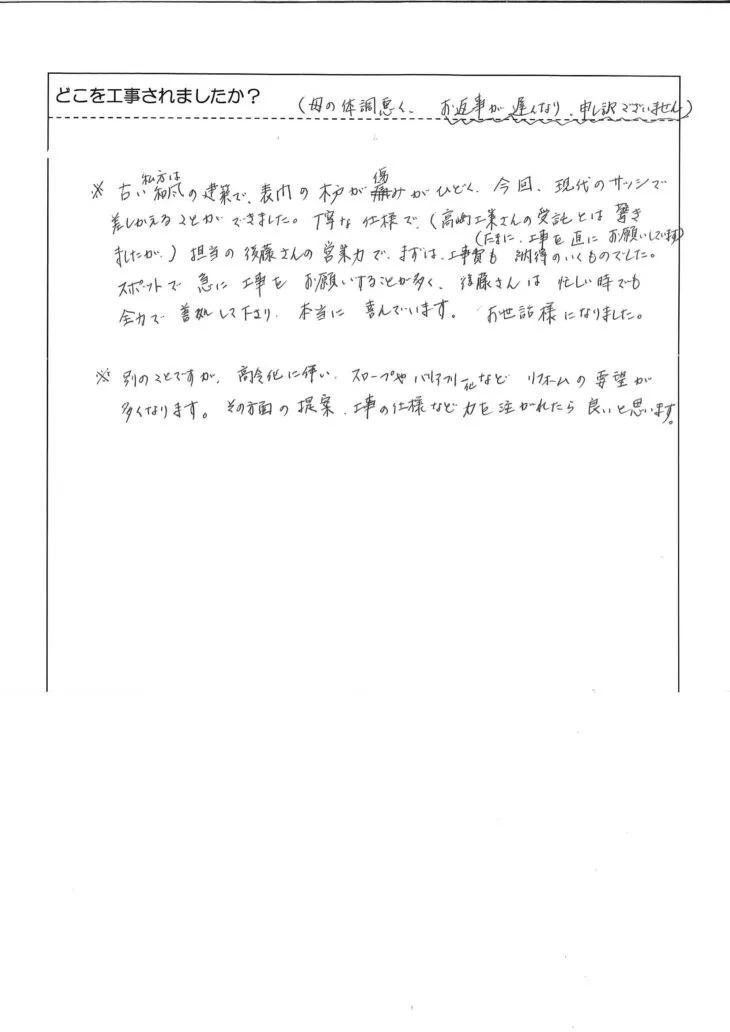 どこを工事されましたか?
(母の体調悪く、お返事が遅くなり、申し訳ございません)
私方は
※ 古い和風の建築で、表門の木戸が傷みがひどく、今回、現代のサッシで
差しかえることができました。丁寧な仕様で、(高崎工業さんの受託とは驚き
ましたが、)担当の後藤さんの営業力で、まずは、工事費も納得のいくものでした。
(たまに、工事を直にお願いしています)
スポットで急に工事をお願いすることが多く、後藤さんは忙しい時でも
全力で善処して下さり、本当に喜んでいます。お世話様になりました。
※ 別のことですが、高令化に伴い、スロープやバリアフリー化などリフォームの要望が
多くなります。その方面の提案、工事の仕様など力を注がれたら良いと思います。